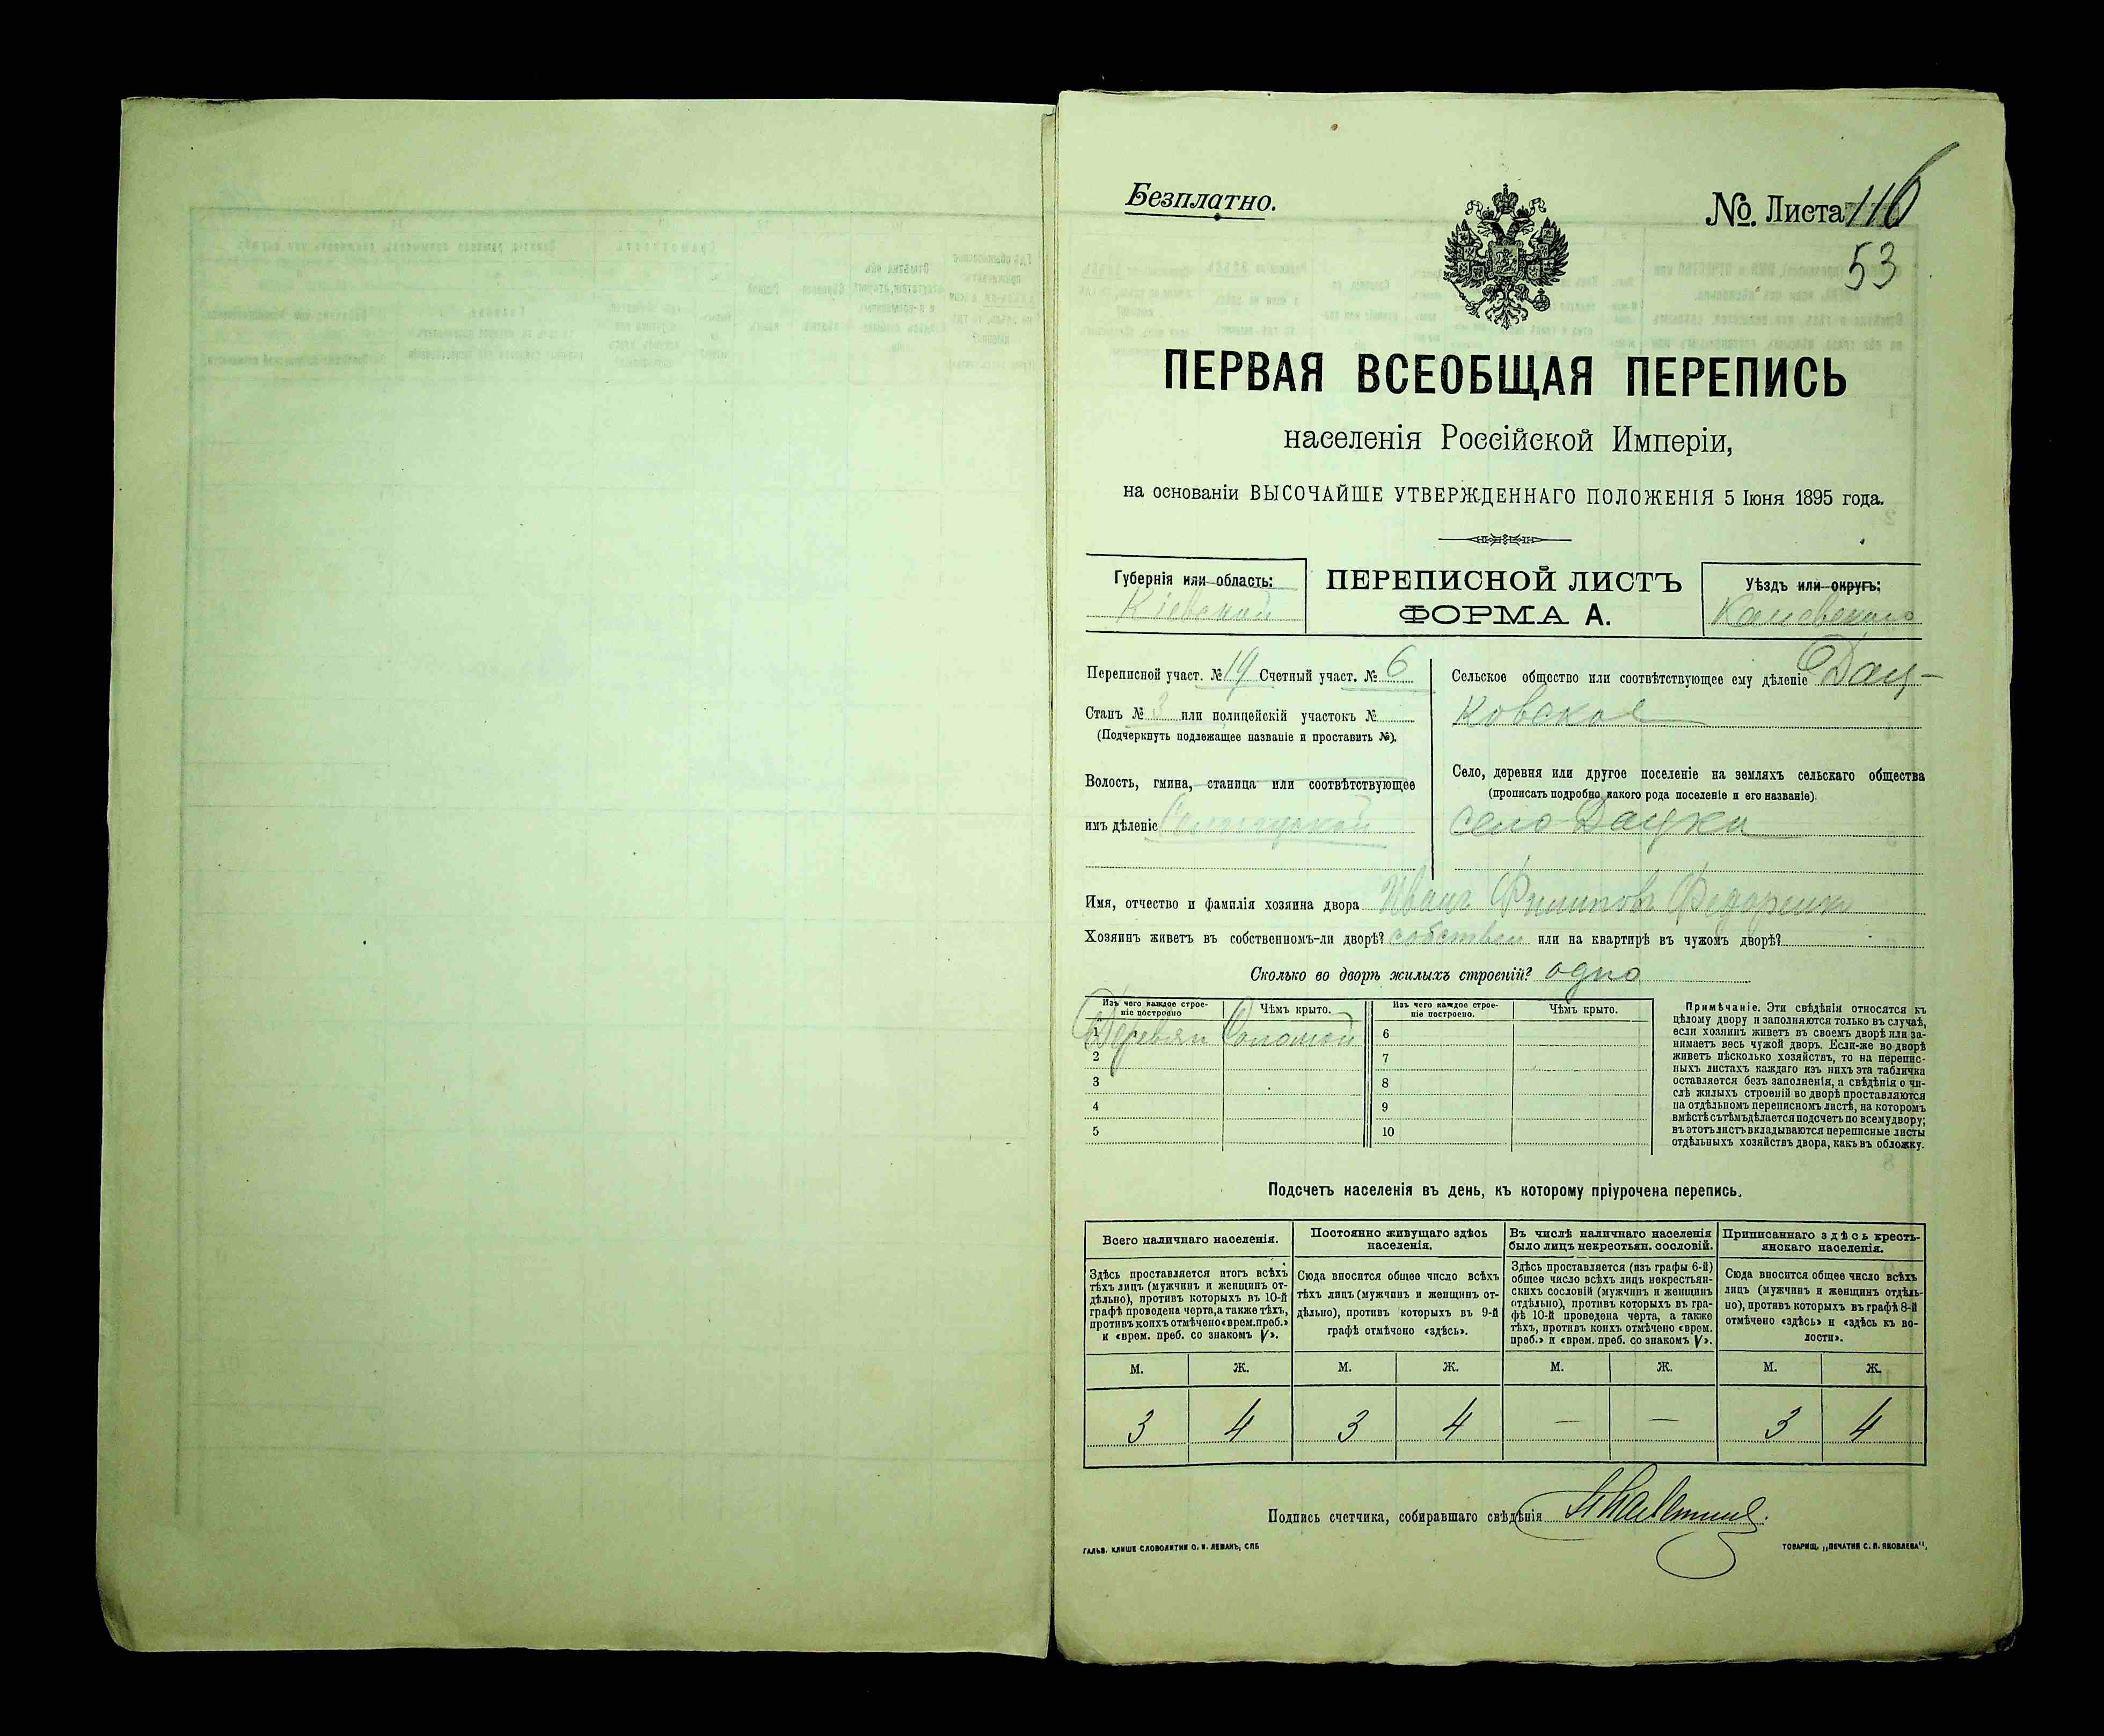 Безплатно.
№ Листа 116
53
ПЕРВАЯ ВСЕОБЩАЯ ПЕРЕПИСЬ
населенія Россійской Имперіи,
на основаніи ВЫСОЧАЙШЕ УТВЕРЖДЕННАГО ПОЛОЖЕНІЯ 5 Іюня 1895 года.
Губернія или область:
Кіевской
ПЕРЕПИСНОЙ ЛИСТЪ
ФОРМА А.
Уѣздъ или округъ:
Каневскаго
Переписной участ. № 19 Счетный участ. № 6
Станъ № 3 или полицейскій участокъ №
(Подчеркнуть подлежащее названіе и проставить №).
Волость, гмина, станица или соотвѣтствующее
имъ дѣленіе
Сельское общество или соотвѣтствующее ему дѣленіе Дац-
ковское
Село, деревня или другое поселеніе на земляхъ сельскаго общества
(прописать подробно, какого рода поселеніе и его названіе).
село Дацки
Имя, отчество и фамилія хозяина двора Иванъ Филиповъ Федоренко
Хозяинъ живетъ въ собственномъ-ли дворѣ? собствен или на квартирѣ въ чужомъ дворѣ?
Сколько во дворѣ жилыхъ строеній? одно
Изъ чего каждое строе-
ніе построено
Чѣмъ крыто.
Изъ чего каждое строе-
ніе построено.
Чѣмъ крыто.
1 Деревян Соломой
2
3
4
5
6
7
8
9
10
Примѣчаніе. Эти свѣдѣнія относятся къ
цѣлому двору и заполняются только въ случаѣ,
если хозяинъ живетъ въ своемъ дворѣ или за-
нимаетъ весь чужой дворъ. Если-же во дворѣ
живетъ нѣсколько хозяйствъ, то на перепис-
ныхъ листахъ каждаго изъ нихъ эта табличка
оставляется безъ заполненія, а свѣдѣнія о чи-
слѣ жилыхъ строеній во дворѣ проставляются
на отдѣльномъ переписномъ листѣ, на которомъ
вмѣстѣ съ тѣмъ дѣлается подсчетъ по всему двору;
въ этотъ листъ вкладываются переписные листы
отдѣльныхъ хозяйствъ двора, какъ въ обложку.
Подсчетъ населенія въ день, къ которому пріурочена перепись.
Всего наличнаго населенія.
Постоянно живущаго здѣсь
населенія.
Въ числѣ наличнаго населенія
было лицъ некрестьян. сословій.
Приписаннаго здѣсь кресть-
янскаго населенія.
Здѣсь проставляется итогъ всѣхъ
тѣхъ лицъ (мужчинъ и женщинъ от-
дѣльно), противъ которыхъ въ 10-й
графѣ проведена черта, а также тѣхъ,
противъ коихъ отмѣчено «врем. преб.»
и «врем. преб. со знакомъ V».
Сюда вносится общее число всѣхъ
тѣхъ лицъ (мужчинъ и женщинъ от-
дѣльно), противъ которыхъ въ 9-й
графѣ отмѣчено «здѣсь».
Здѣсь проставляется (изъ графы 6-й)
общее число всѣхъ лицъ некрестьян-
скихъ сословій (мужчинъ и женщинъ
отдѣльно), противъ которыхъ въ гра-
фѣ 10-й проведена черта, а также
тѣхъ, противъ коихъ отмѣчено «врем.
преб.» и «врем. преб. со знакомъ V».
Сюда вносится общее число всѣхъ
лицъ (мужчинъ и женщинъ отдѣль-
но), противъ которыхъ въ графѣ 8-й
отмѣчено «здѣсь» и «здѣсь къ во-
лости».
М. Ж. М. Ж. М. Ж. М. Ж.
3 4 3 4 — — 3 4
Подпись счетчика, собиравшаго свѣдѣнія
ГАЛЬВ. КЛИШЕ СЛОВОЛИТНИ О. И. ЛЕМАНЪ, СПБ
ТОВАРИЩ. „ПЕЧАТНИ С. П. ЯКОВЛЕВА".